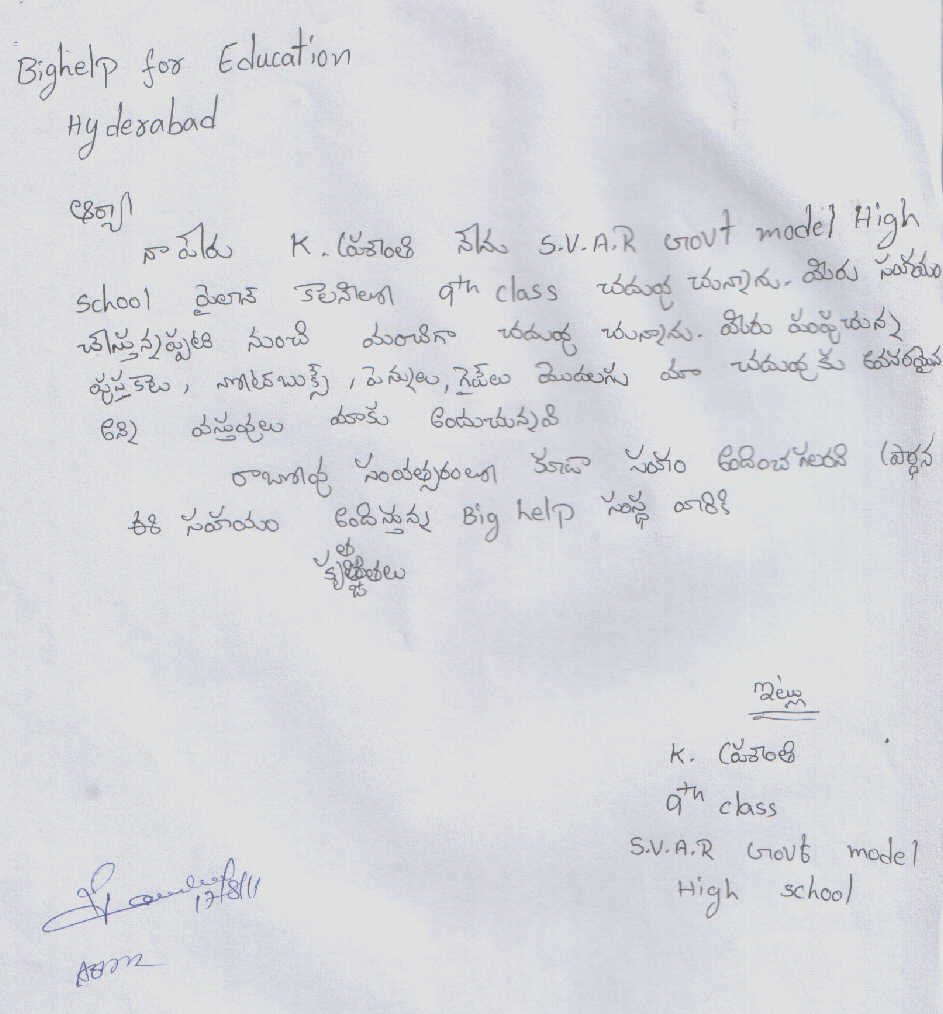 Bighelp for Education
Hyderabad
ఆర్యా
నా పేరు K. ప్రశాంతి నేను S.V.A.R Govt model High
school రైలాబ్ కాలనిలో 9th class చదువు చున్నాను. మీరు సహాయం
చేస్తున్నప్పటి నుంచి మంచిగా చదువు చున్నాను. మీరు పంపుచున్న
పుస్తకాలు, నోట్‌బుక్స్, పెన్నులు, గైడ్‌లు మొదలగు మా చదువుకు అవసరమైన
అన్ని వస్తువులు మాకు అందుచున్నవి
రాబోవు సంవత్సరంలో కూడా సహాం అందించగలరని ప్రార్థన
ఈ సహాయం అందిస్తున్న Big help సంస్థ వారికి
కృతజ్ఞతలు
ఇట్లు
K. ప్రశాంతి
9th class
S.V.A.R Govt model
High school
17/8/11